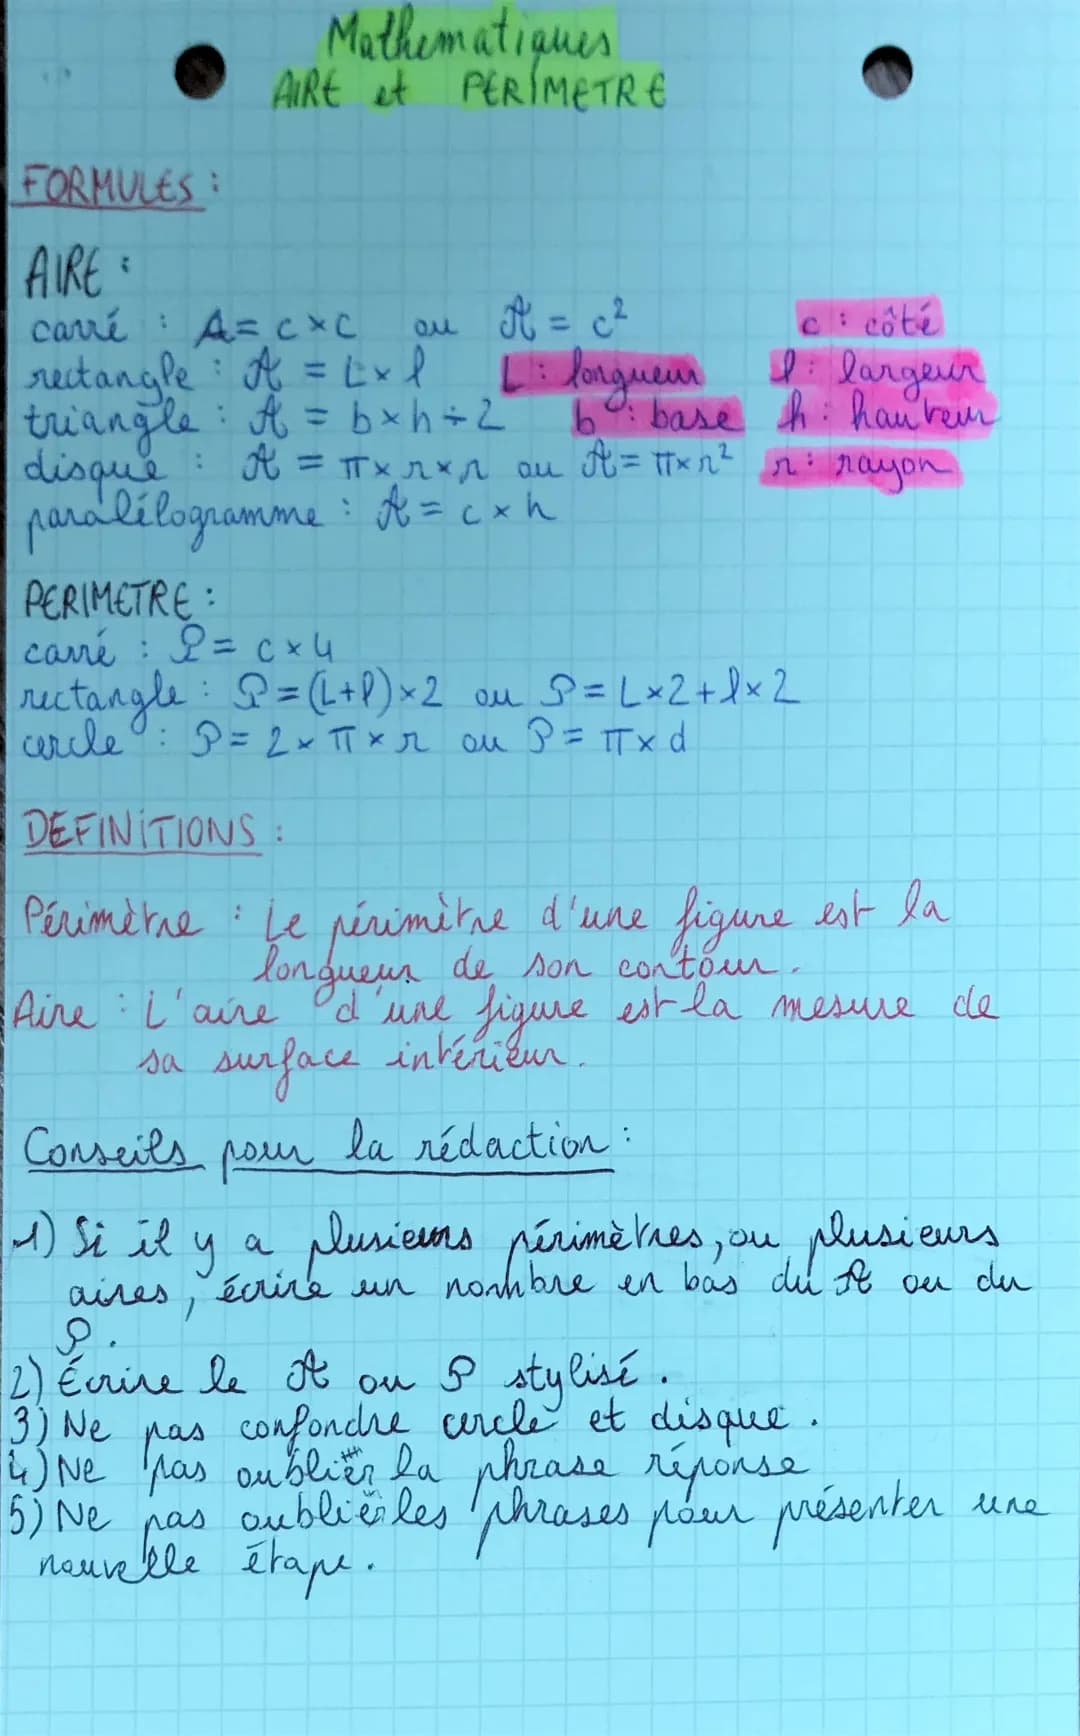 Mathematiques
AIRE et PERIMETRE
FORMULES :
AIRE :
carré : A = c × c ou A = c² c : côté
rectangle : A = L × l L : longueur l : largeur
triangle : A = b × h ÷ 2 b : base h : hauteur
disque : A = π × r × r ou A = π × r² r : rayon
paralélogramme : A = c × h
PERIMETRE :
carré : P = c × 4
rectangle : P = (L + l) × 2 ou P = L × 2 + l × 2
cercle : P = 2 × π × r ou P = π × d
DEFINITIONS :
Périmètre : Le périmètre d'une figure est la
longueur de son contour.
Aire : L'aire d'une figure est la mesure de
sa surface intérieur.
Conseils pour la rédaction :
1) Si il y a plusieurs périmètres, ou plusieurs
aires, écrire un nombre en bas du A ou du
P.
2) Écrire le A ou P stylisé.
3) Ne pas confondre cercle et disque.
4) Ne pas oublier la phrase réponse
5) Ne pas oublier les phrases pour présenter une
nouvelle étape.